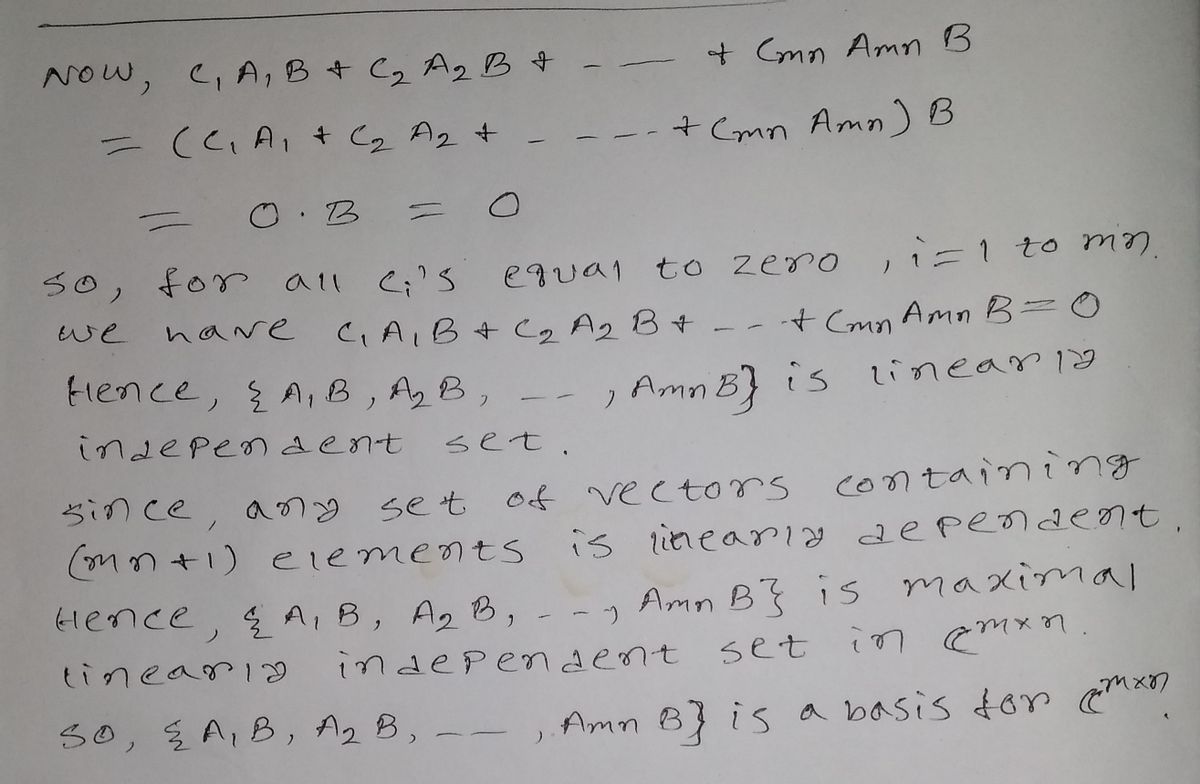 NOW, C₁A₁B + C₂A₂B + - — + Cmn Amn B
= (C₁A₁ + C₂A₂ + - - - - + Cmn Amn) B
= O·B = O
so, for all Cᵢ's equal to zero, i=1 to mn.
we have C₁A₁B + C₂A₂B + - - + Cmn Amn B = O
Hence, {A₁B, A₂B, - - , Amn B} is linearly
independent set.
since, any set of vectors containing
(mn+1) elements is linearly dependent.
Hence, {A₁B, A₂B, - - , Amn B} is maximal
linearly independent set in ℂ^{m×n}.
so, {A₁B, A₂B, — — , Amn B} is a basis for ℂ^{m×n}.